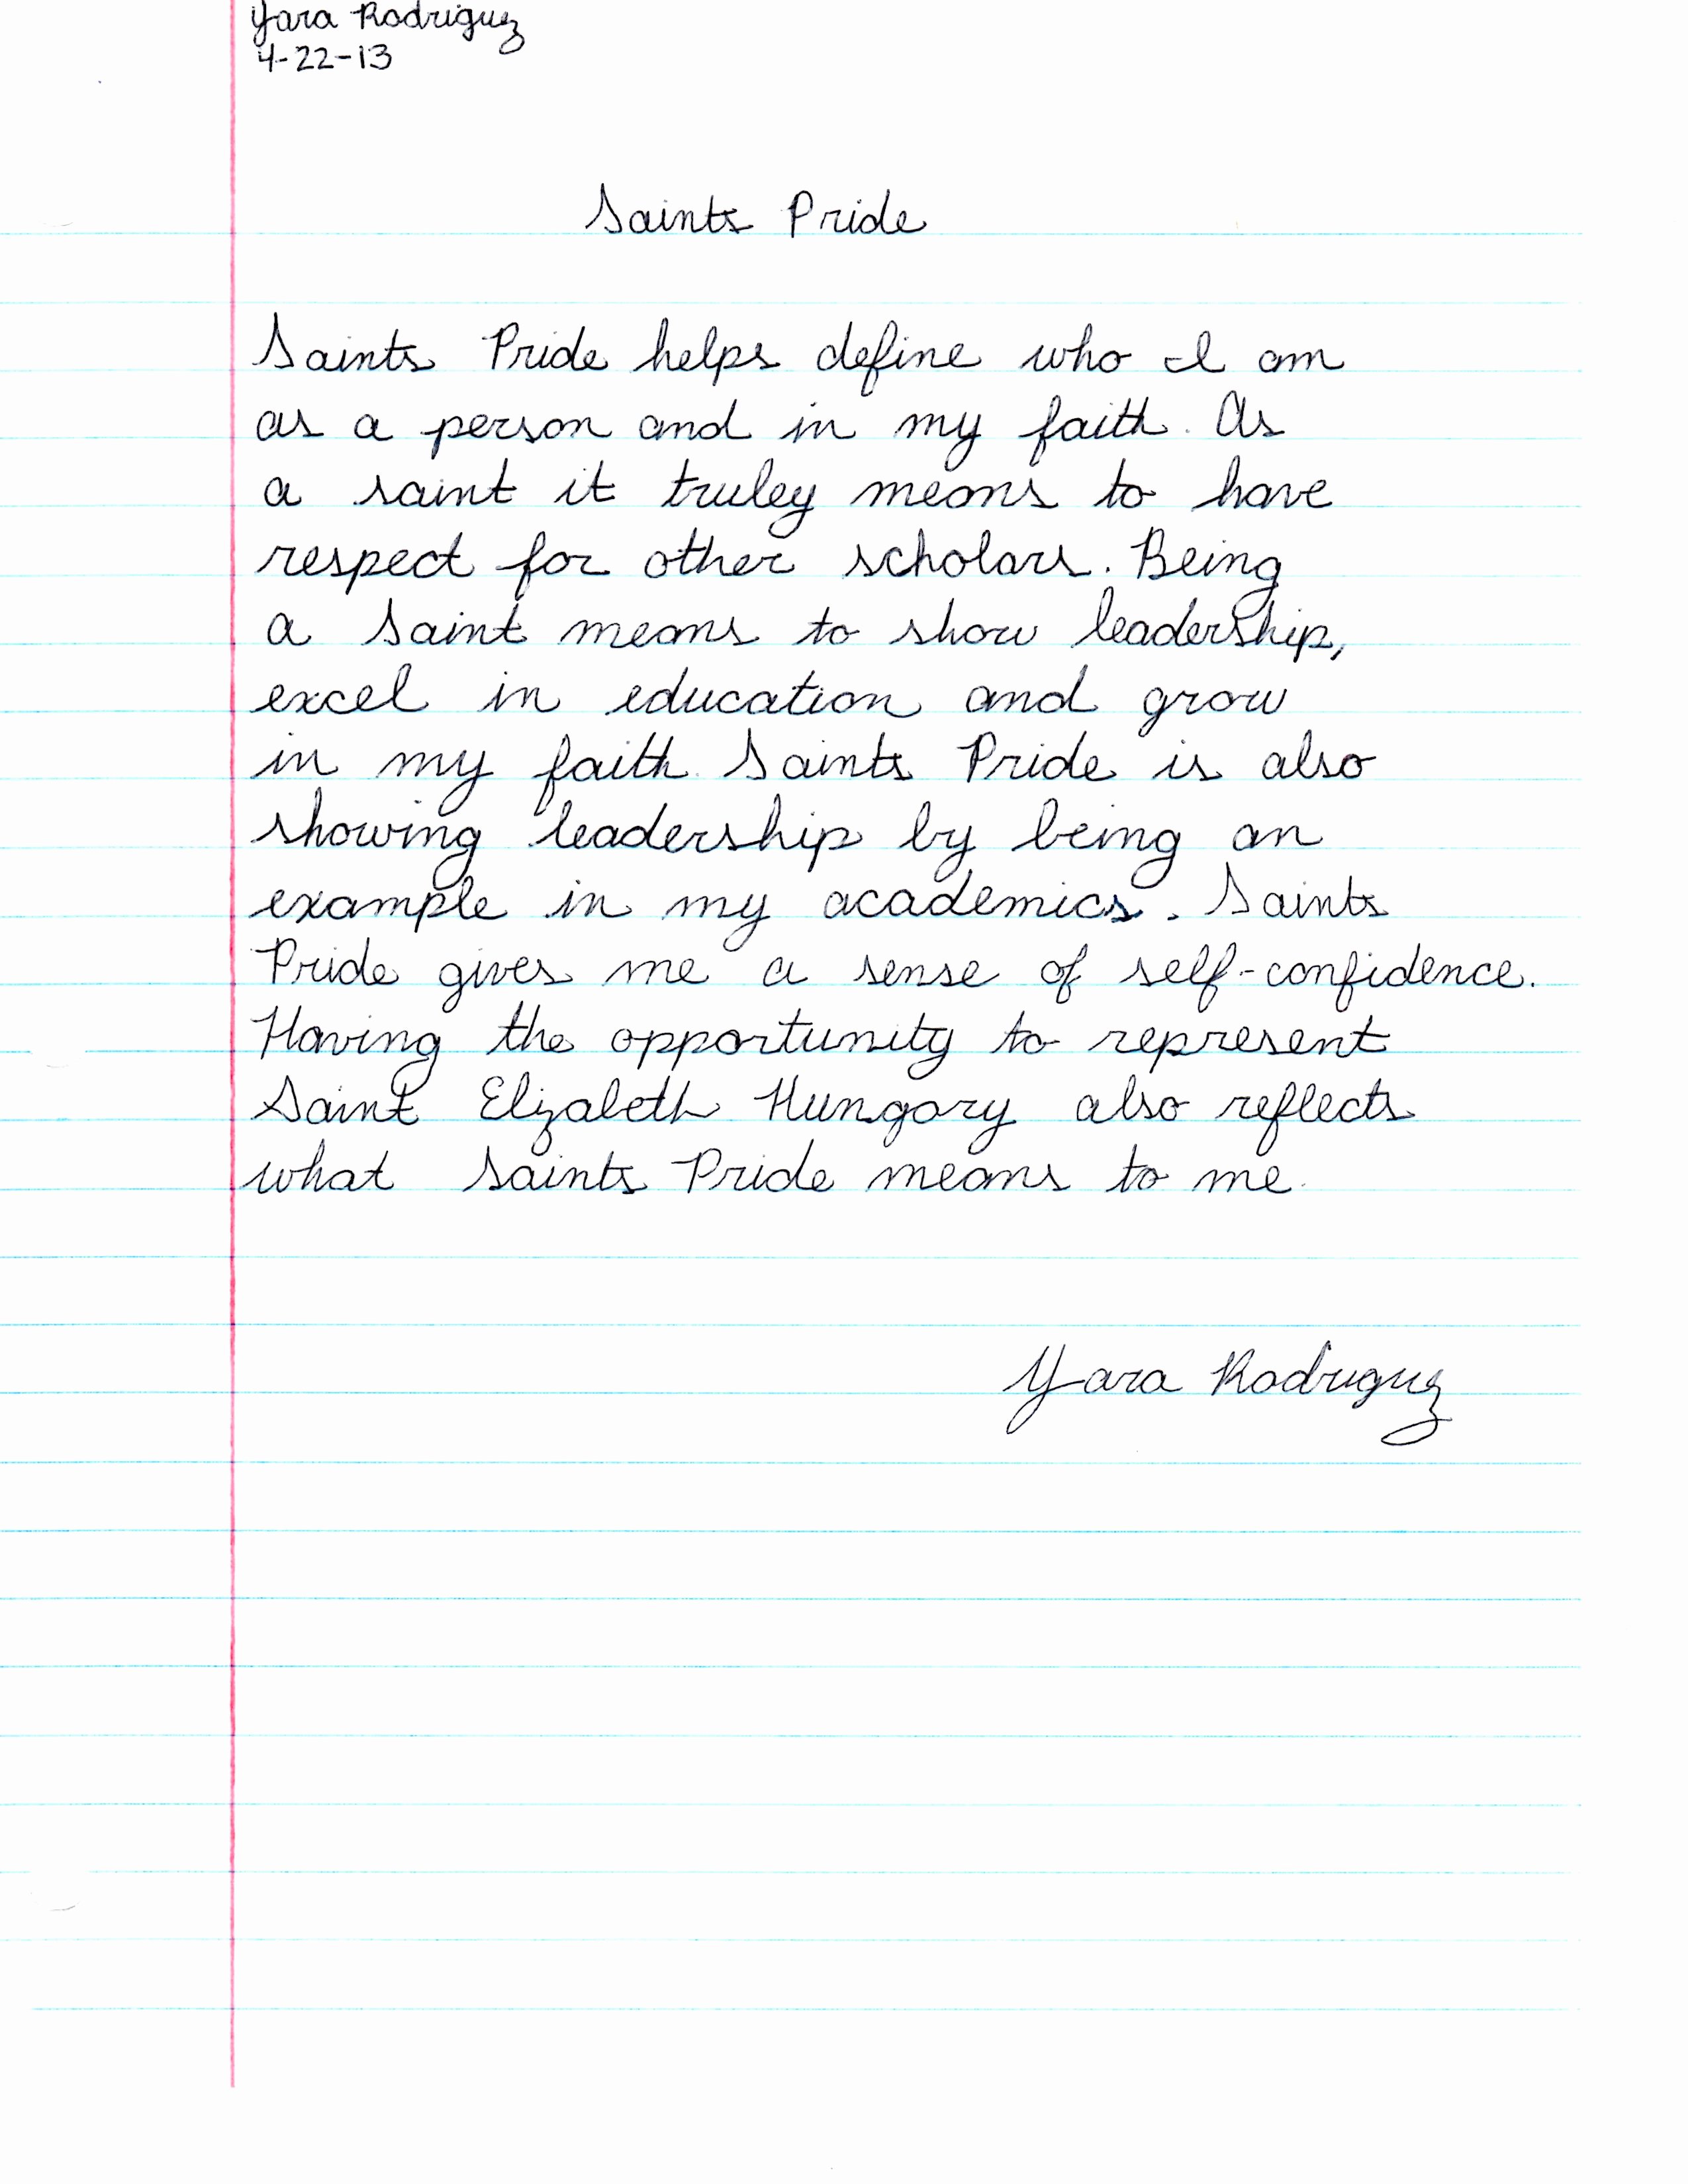 Yara Rodriguez
4-22-13
Saints Pride
Saints Pride helps define who I am
as a person and in my faith. As
a saint it truley means to have
respect for other scholars. Being
a Saint means to show leadership,
excel in education and grow
in my faith. Saints Pride is also
showing leadership by being an
example in my academics. Saints
Pride gives me a sense of self-confidence.
Having the opportunity to represent
Saint Elizabeth Hungary also reflects
what Saints Pride means to me.
Yara Rodriguez